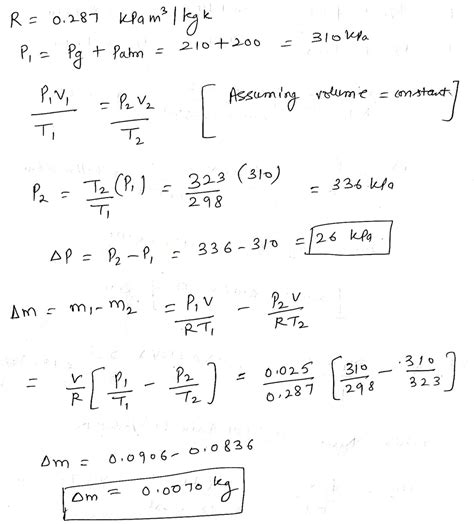 R = 0.287 kPam³/kgk
P₁ = Pg + Patm = 210+200 = 310 kPa
P₁V₁/T₁ = P₂V₂/T₂ [Assuming volume = constant]
P₂ = T₂/T₁ (P₁) = 323/298 (310) = 336 kPa
ΔP = P₂-P₁ = 336-310 = 26 kPa
Δm = m₁-m₂ = P₁V/RT₁ - P₂V/RT₂
= V/R [P₁/T₁ - P₂/T₂] = 0.025/0.287 [310/298 - 310/323]
Δm = 0.0906-0.0836
Δm = 0.0070 kg